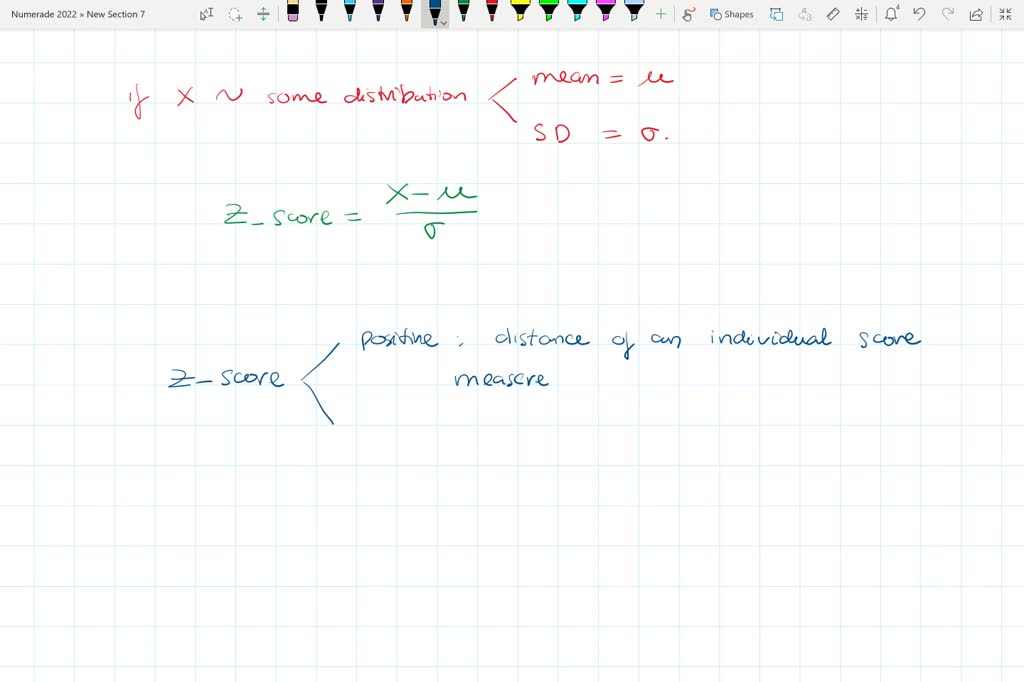 Numerade 2022 » New Section 7
Shapes
if X ~ some distribution
mean = μ
SD = σ.
Z_score = X-μ
σ
positive : distance of an individual score
Z-score
measere